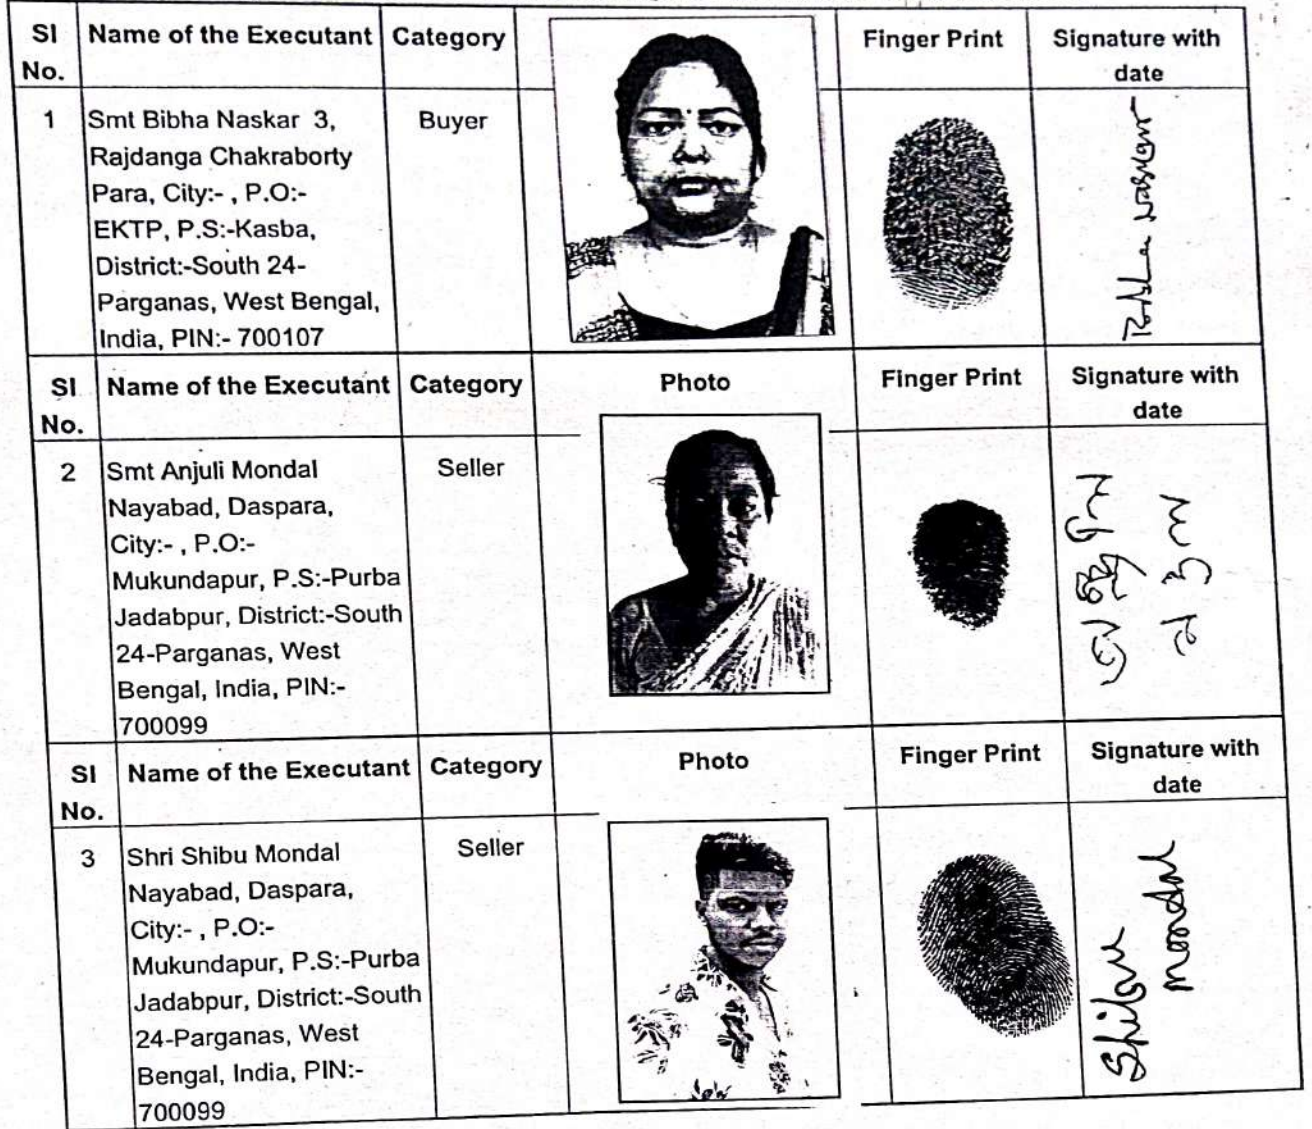 Sl No. Name of the Executant Category Finger Print Signature with date
1 Smt Bibha Naskar 3, Buyer
Rajdanga Chakraborty
Para, City:- , P.O:-
EKTP, P.S:-Kasba,
District:-South 24-
Parganas, West Bengal,
India, PIN:- 700107
Bibha Naskar
Sl No. Name of the Executant Category Photo Finger Print Signature with date
2 Smt Anjuli Mondal Seller
Nayabad, Daspara,
City:- , P.O:-
Mukundapur, P.S:-Purba
Jadabpur, District:-South
24-Parganas, West
Bengal, India, PIN:-
700099
Sl No. Name of the Executant Category Photo Finger Print Signature with date
3 Shri Shibu Mondal Seller
Nayabad, Daspara,
City:- , P.O:-
Mukundapur, P.S:-Purba
Jadabpur, District:-South
24-Parganas, West
Bengal, India, PIN:-
700099
Shibu
mondal